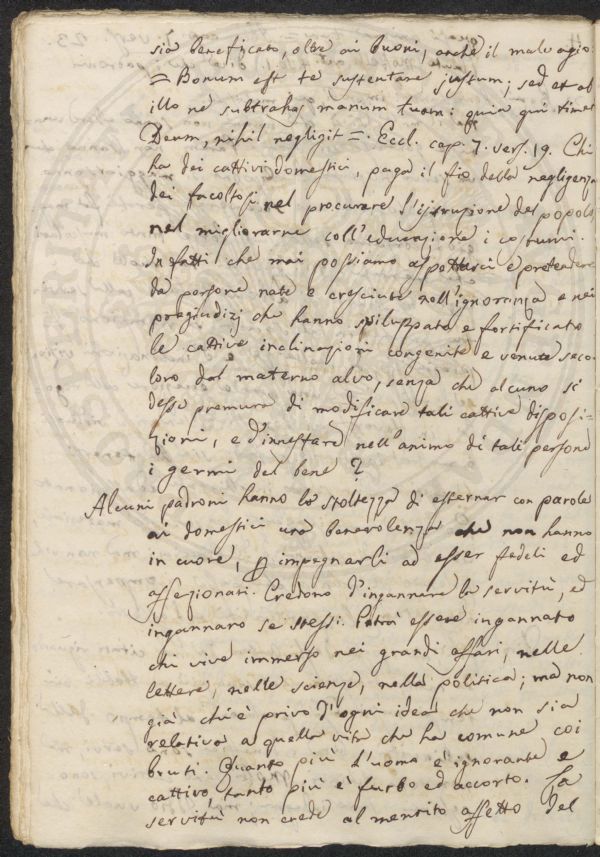 sia beneficato, oltre ai buoni, anche il malvagio:
= Bonum est te sustentare justum; sed et ab
illo ne subtrahas manum tuam: quia qui timet
Deum, nihil negligit =. Eccl. cap. 7. vers. 19. Chi
ha dei cattivi domestici, paga il fio della negligenza
dei facoltosi nel procurare l'istruzione del popolo,
nel migliorarne coll'educazione i costumi.
In fatti che mai possiamo aspettarci e pretendere
da persone nate e cresciute nell'ignoranza e nei
pregiudizj che hanno sviluppato e fortificato
le cattive inclinazioni congenite e venute seco-
loro dal materno alvo, senza che alcuno si
desse premura di modificare tali cattive disposi-
zioni, e d'innestare nell'animo di tali persone
i germi del bene?
Alcuni padroni hanno la stoltezza di esternar con parole
ai domestici una benevolenza che non hanno
in cuore, p impegnarli ad esser fedeli ed
affezionati. Credono d'ingannare la servitù, ed
ingannano se stessi. Potrà essere ingannato
chi vive immerso nei grandi affari, nelle
lettere, nelle scienze, nella politica; ma non
già chi è privo d'ogni idea che non sia
relativa a quella vita che ha comune coi
bruti. Quanto più l'uomo è ignorante e
cattivo tanto più è furbo ed accorto. La
servitù non crede al mentito affetto del